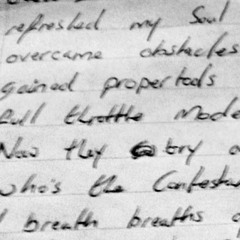 refreshed my Soul
overcame obstacles
gained proper tools
full throttle Mode
Now they try
who's the
I breath breaths